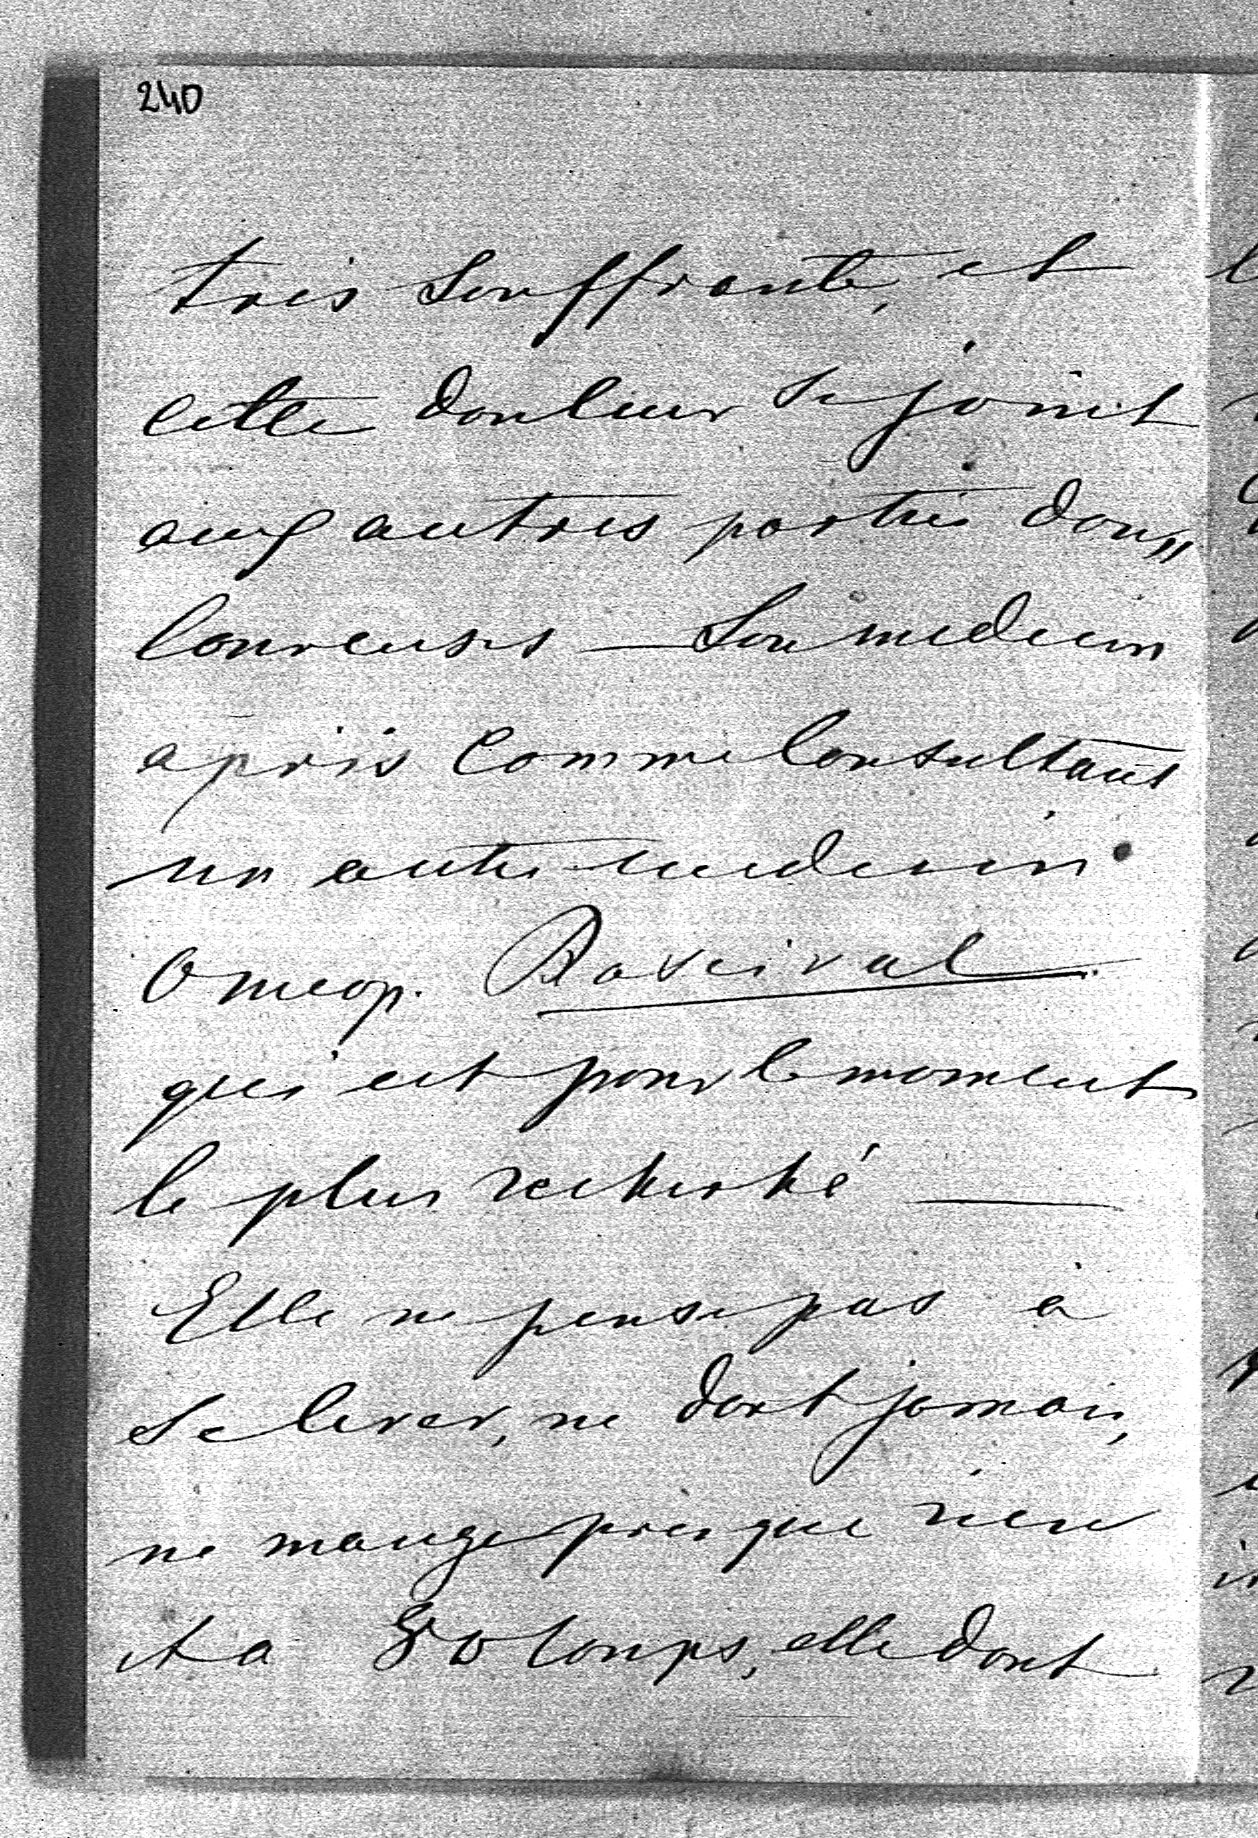 240
très souffrante, et
cette douleur se joint
aux autres parties dou„
loureuses — Son medecin
a pris comme Consultant
un autre medecin
Omeop.
qui est pour le moment
le plus recherché —
Elle ne pense pas à
se lever, ne dort jamais,
ne mange presque rien
et a 80 coups, elle dont